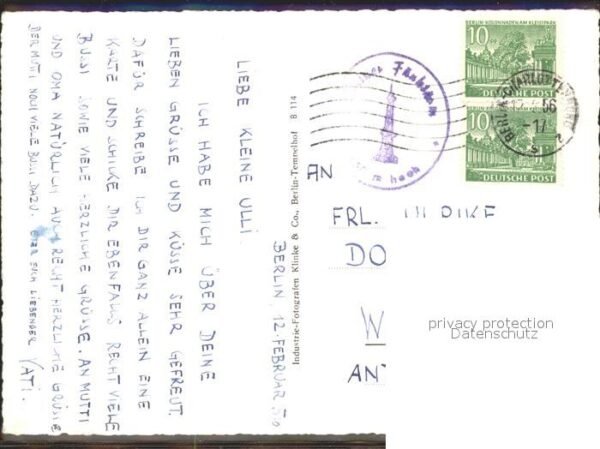 BERLIN, 12. FEBRUAR 56
LIEBE KLEINE ULLI.
ICH HABE MICH ÜBER DEINE
LIEBEN GRÜSSE UND KÜSSE SEHR GEFREUT.
DAFÜR SCHREIBE ICH DIR GANZ ALLEIN EINE
KARTE UND SCHICKE DIR EBENFALLS RECHT VIELE
BUSSI SOWIE VIELE HERZLICHE GRÜSSE. AN MUTTI
UND OMA NATÜRLICH AUCH RECHT HERZLICHE GRÜSSE
DER MUTTI NOCH VIELE BUSSI DAZU. EUER EUCH LIEBENDER VATI.
Industrie-Fotografen Klinke & Co., Berlin-Tempelhof B 114
BERLIN KOLONNADEN AM KLEISTPARK
10
DEUTSCHE POST
10
DEUTSCHE POST
BERLIN-CHARLOTTENBURG
12. 56
-17
Funkturm
hoch
AN
FRL. ULRIKE
DO
W
AN
privacy protection
Datenschutz